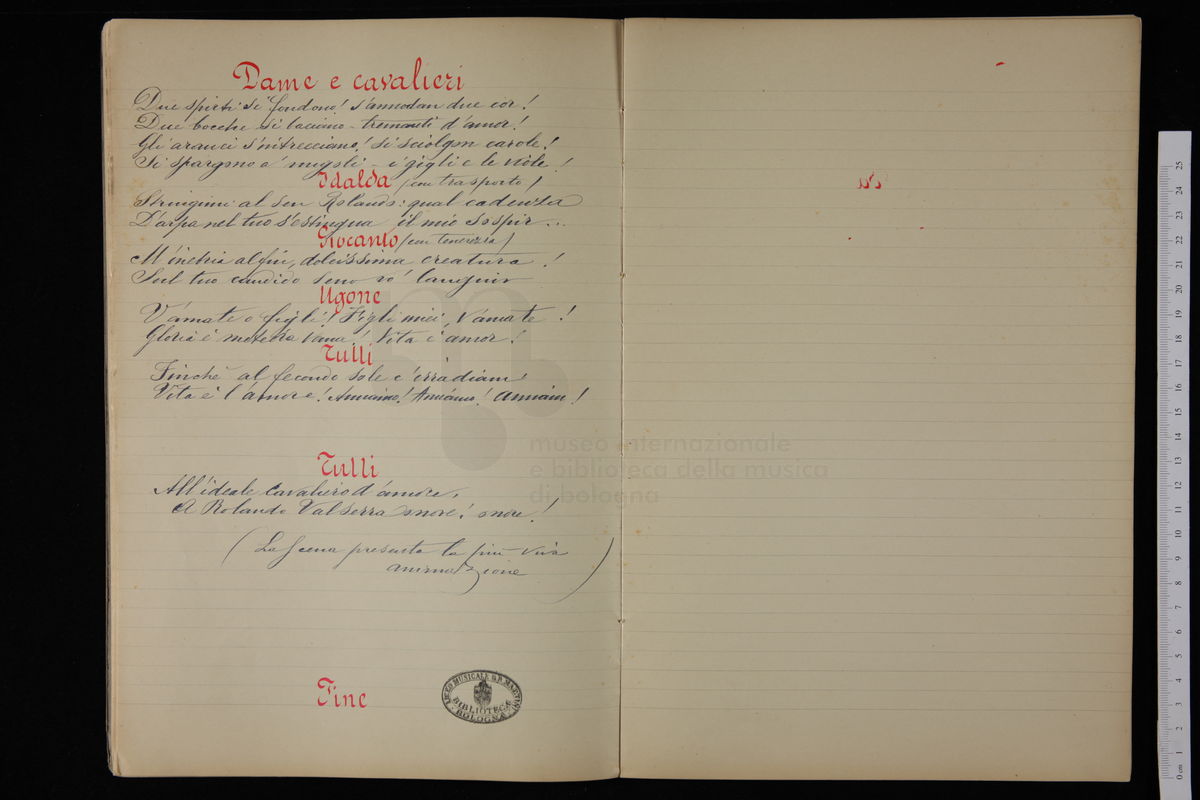 Dame e cavalieri
Due spirti si fondono! S'annodan due cor!
Due bocche si baciano - tremanti d'amor!
Gli aranci s'intrecciano! Si sciolgon carole!
Si spargono a' - i gigli e le viole!
Idalda (con trasporto)
Stringimi al sen Rolando: qual cadenza
D'arpa nel tuo s'estingua il mio sospir...
Giocanto (con tenerezza)
M'inebria alfin, dolcissima creatura!
Sul tuo candido seno vo' languir
Ugone
V'amate o figli! Figli miei, v'amate!
Gloria è vana! Vita è amor!
Tutti
Finchè al fecondo sole c'irradiam
Vita è l'amore! Amiamo! Amiamo! Amiam!
Tutti
All'ideale Cavaliero d'amore,
A Rolando Valserra onore! onore!
(La scena presenta la più viva
animazione)
Fine
LICEO MUSICALE G.B. MARTINI
BIBLIOTECA
BOLOGNA
museo internazionale
e biblioteca della musica
di bologna
0 cm 1 2 3 4 5 6 7 8 9 10 11 12 13 14 15 16 17 18 19 20 21 22 23 24 25